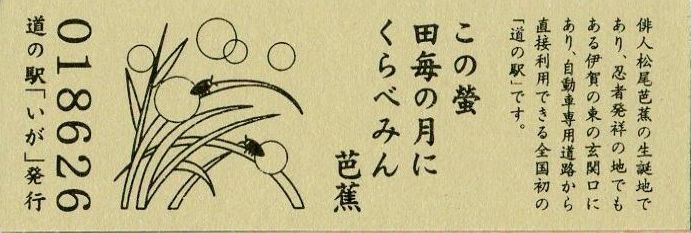 俳人松尾芭蕉の生誕地で
あり、忍者発祥の地でも
ある伊賀の東の玄関口に
あり、自動車専用道路から
直接利用できる全国初の
「道の駅」です。
この螢
田毎の月に
くらべみん
芭蕉
018626
道の駅「いが」発行